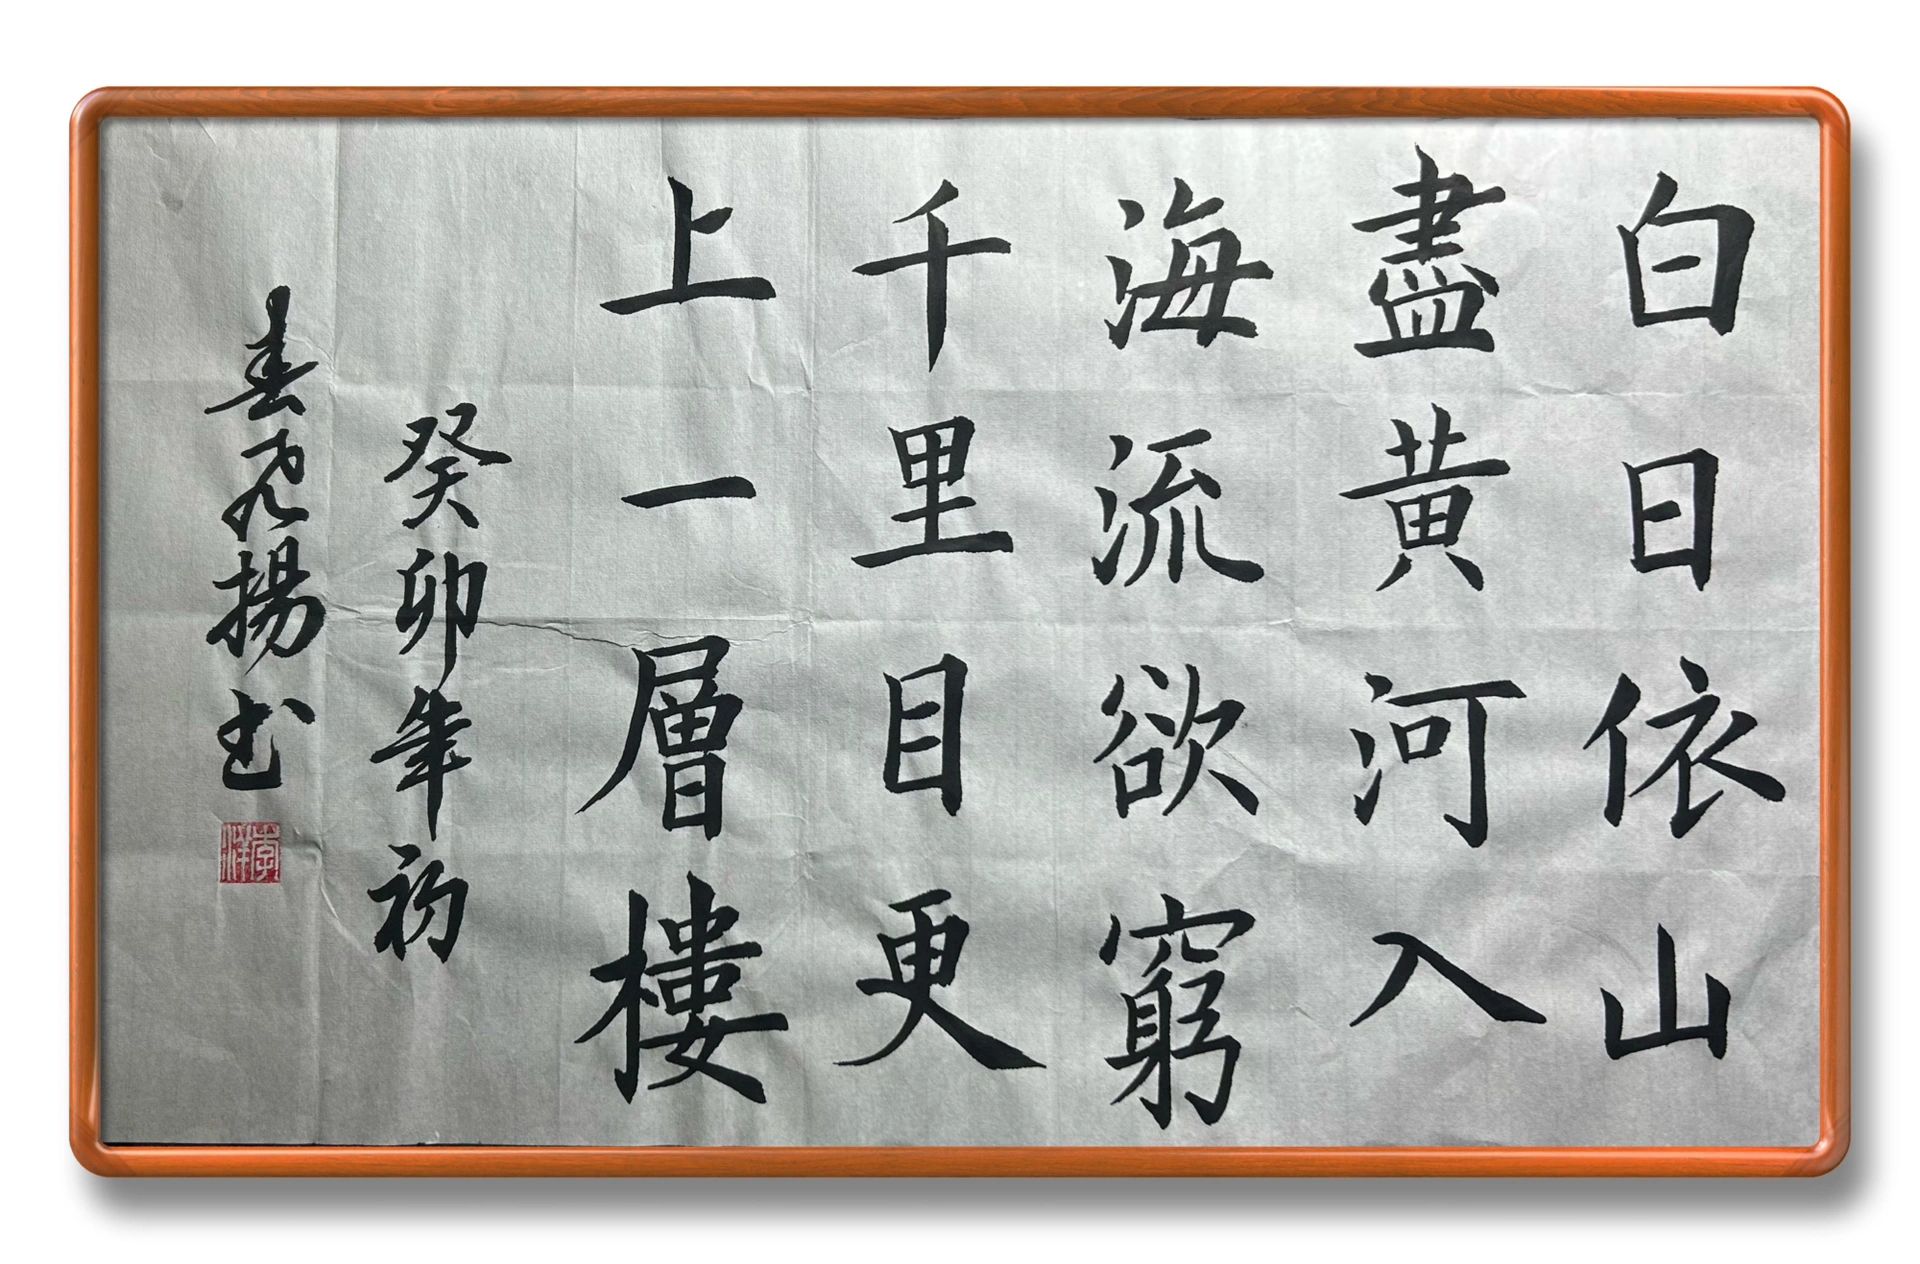 白日依山
盡黄河入
海流欲窮
千里目更
上一層樓
癸卯年初
春揚书